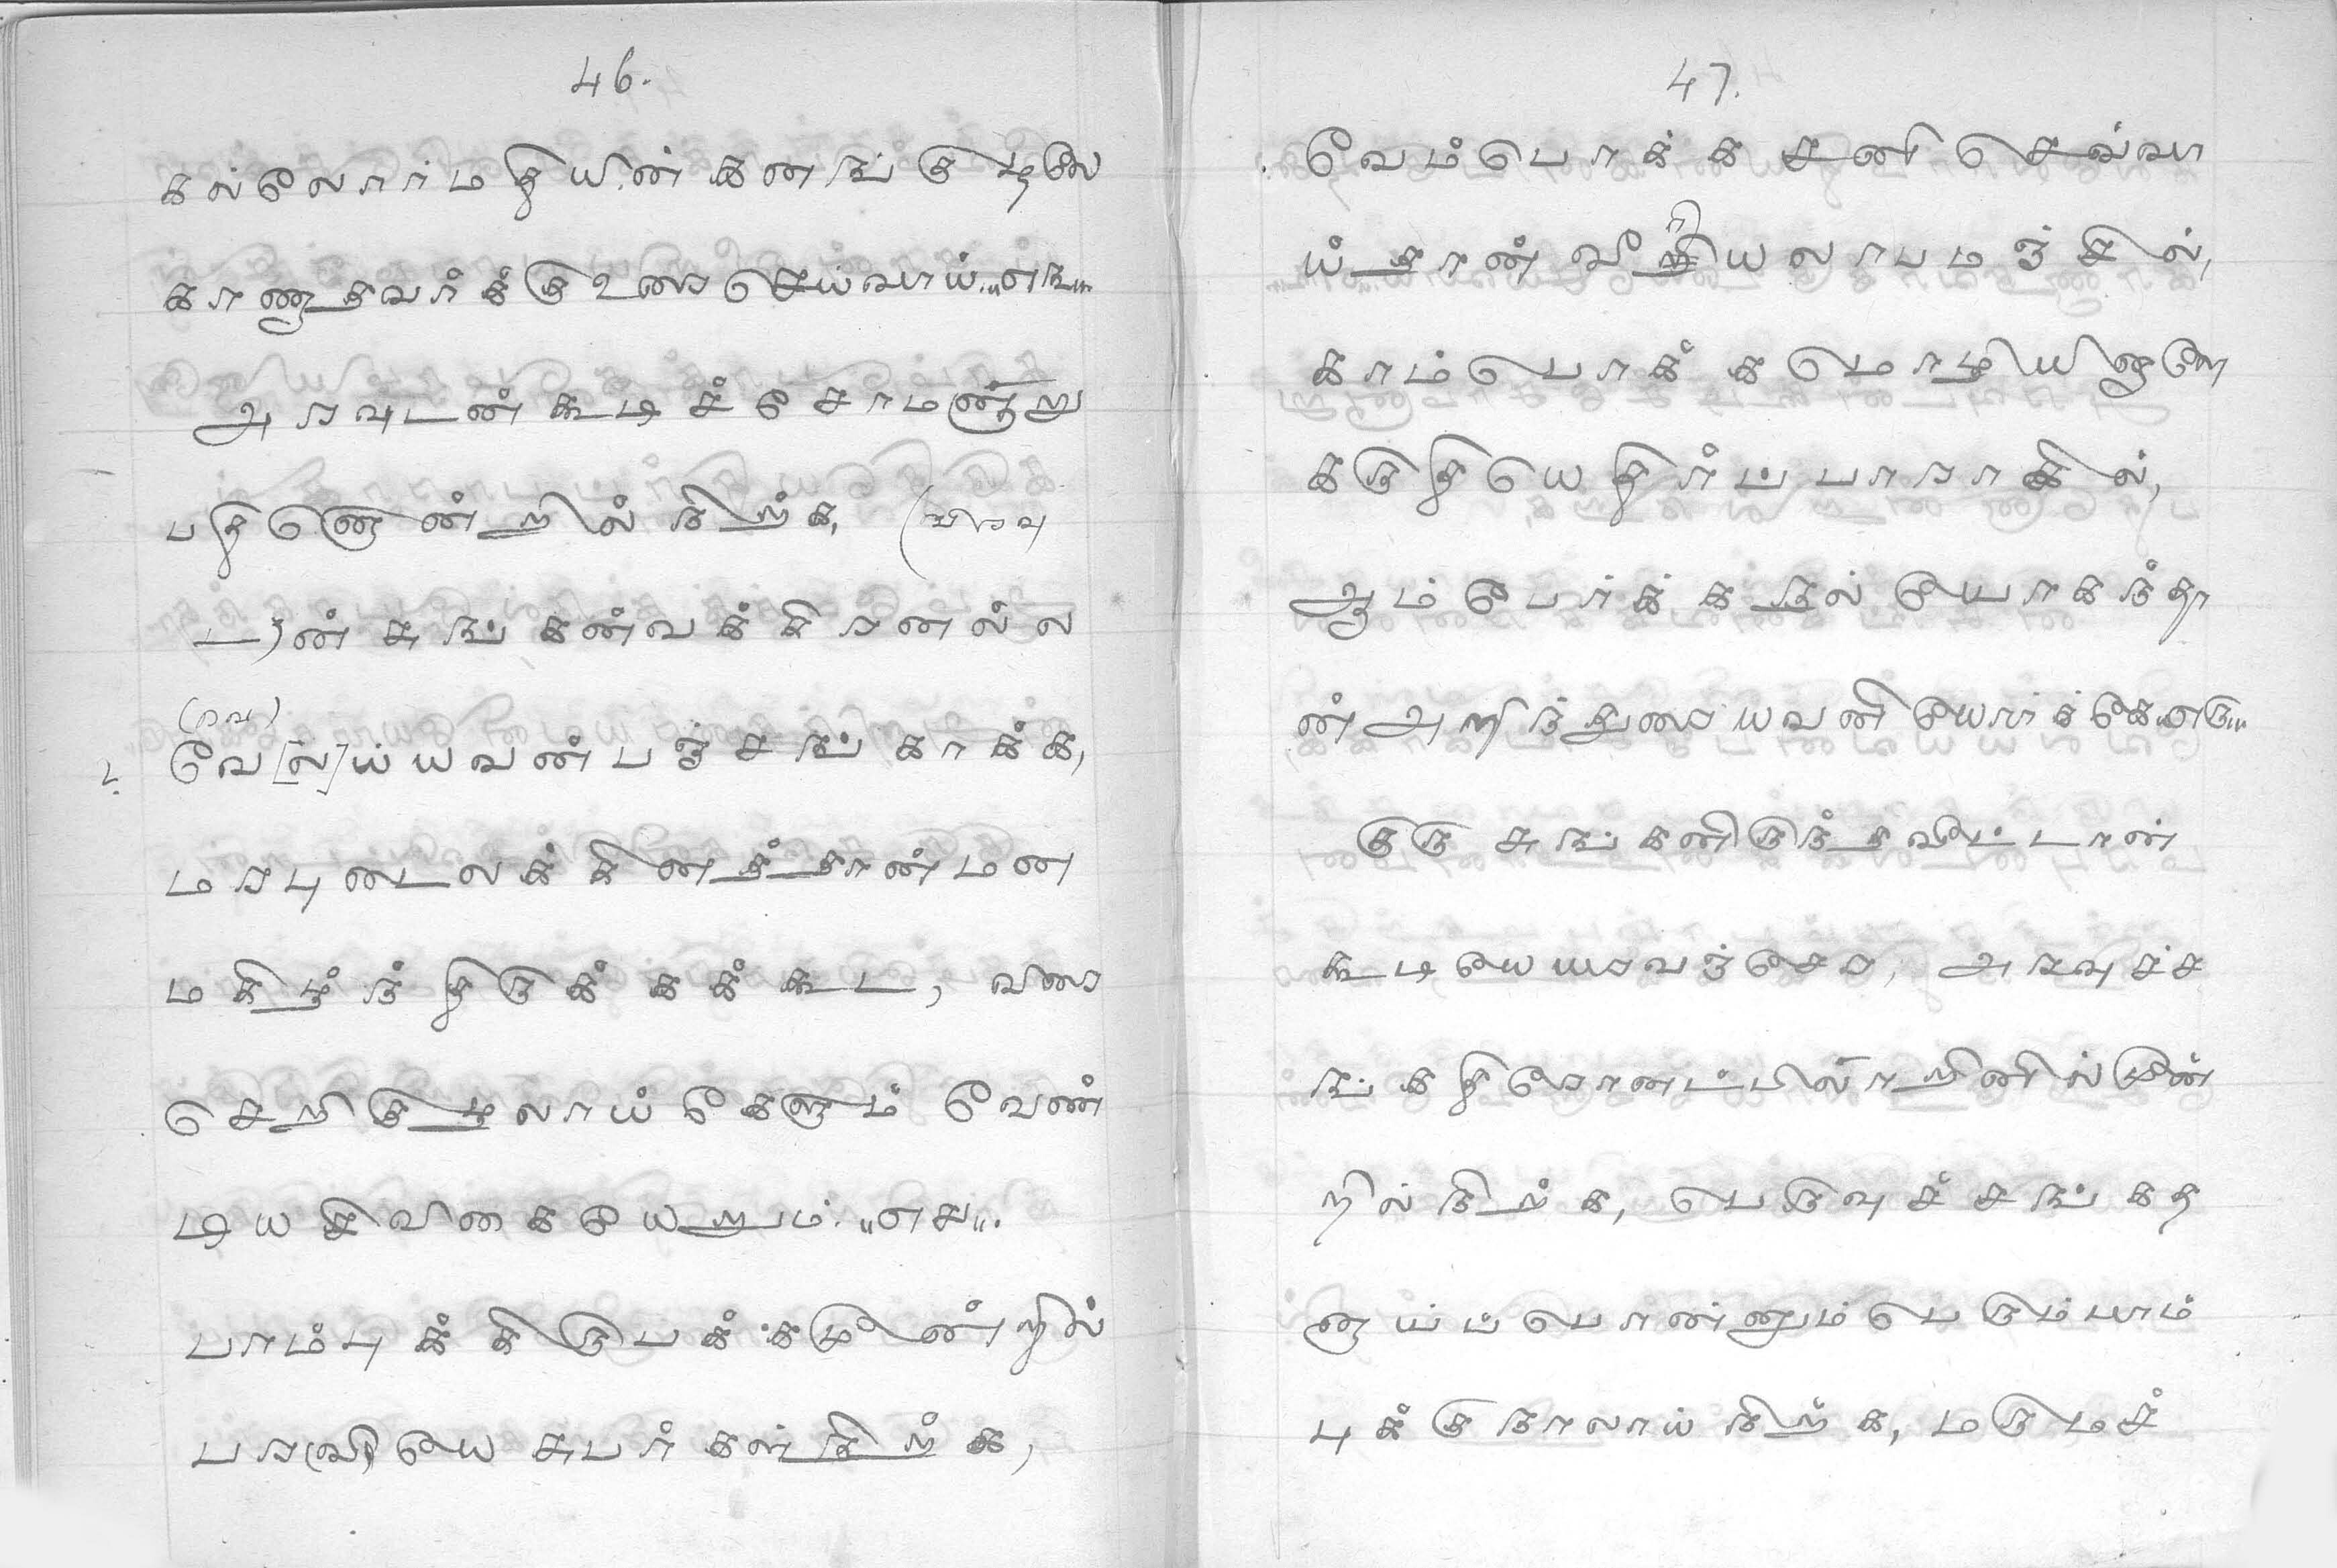 46.
கல்லோார்மதியின் கனநங் குழலே
காணுதவர்க்குஉரை செய்வாய்.„எரு„.
அரவுடன் கூடிச் சோமனன்று
பதினொன்றில் நிற்க, (பரவு
ட)ன் சுங்கன்வக்கிரனல்ல
(ரவ)
வே[ல்]ய்யவன் பஞ்சங் காக்க,
மரபுடைலக்கினத்தான்மன
மகிழ்ந்திருக்கக் கூட, விரை
செறிகுழலாய் கேளும் வேண்
டியசிவிகையேறும்.„எசு„.
பாம்புக்கிருபக்கமூன்றில்
பரவியேசுபர்கள்நிற்க,
47.
வேம்பொக்க சனி செவ்வா
ய்தான் வீறியலாபமஞ்சில்,
காம்பொக்க மொழியினாளே
கருதியெதிர்ப்பாராகில்,
ஆம்பேர்க்கநல்யோகந்தா
ன் அறிந்துரையவனியோர்க்கே.„எரு„.
குரு சுங்கனிருந்தவீட்டான்
கூடியேயரவஞ்சேர, அரவுச்ச
ங்கதிரோனட்டிலாறினில்மூன்
றில் நிற்க, பெருவுச்சங்கத
னாய்ப்பொன்னும்பெரும்பாம்
புக்குநாலாய்நிற்க, மருமச்